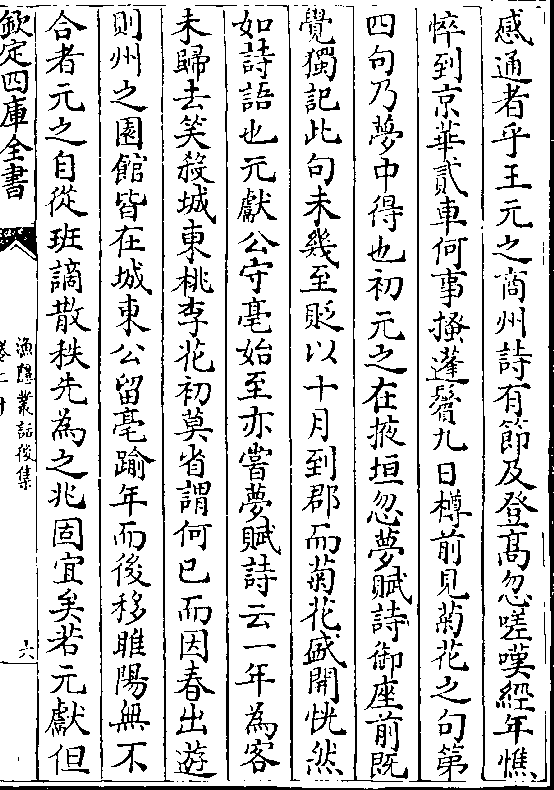 感通者乎王元之商州詩有節及登髙忽嗟嘆經年憔
悴到京華貳車何事搔蓬鬢九日樽前見菊花之句第
四句乃夢中得也初元之在掖垣忽夢賦詩御座前既
覺獨記此句未幾至貶以十月到郡而菊花盛開恍然
如詩語也元獻公守亳始至亦嘗夢賦詩云一年為客
未歸去笑殺城東桃李花初莫省謂何已而因春出遊
則州之園館皆在城東公留亳踰年而後移睢陽無不
合者元之自從班謫散秩先為之兆固宜矣若元獻但
欽定四庫全書
漁隱叢話後集
卷二十
六